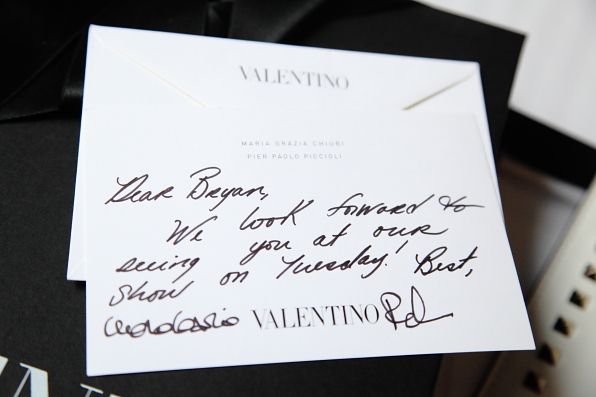 VALENTINO
MARIA GRAZIA CHIURI
PIER PAOLO PICCIOLI
Dear Bryan,
We look forward to
seeing you at our
show on Tuesday! Best,
VALENTINO